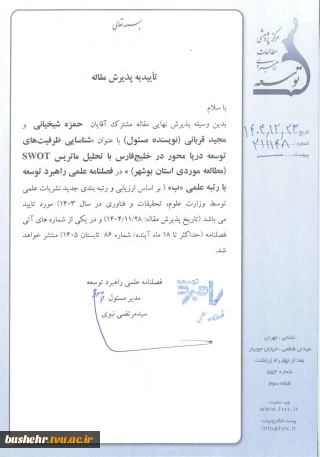 بسمه تعالی
مرکز پژوهشی
مطالعات
راهبردی
توسعه
تاریخ
شماره
پیوست
تأییدیه پذیرش مقاله
با سلام
بدین وسیله پذیرش نهایی مقاله مشترک آقایان حمزه شیخیانی و
مجید قربانی (نویسنده مسئول) با عنوان «شناسایی ظرفیت‌های
توسعه دریا محور در خلیج‌فارس با تحلیل ماتریس SWOT
(مطالعه موردی استان بوشهر) » در فصلنامه علمی راهبرد توسعه
با رتبه علمی «ب» ( بر اساس ارزیابی و رتبه بندی جدید نشریات علمی
توسط وزارت علوم، تحقیقات و فناوری در سال ۱۴۰۳) مورد تایید
می باشد (تاریخ پذیرش مقاله: ۱۴۰۴/۱۱/۲۸) و در یکی از شماره های آتی
فصلنامه (حداکثر تا ۱۸ ماه آینده/ شماره ۸۶ تابستان ۱۴۰۵) منتشر خواهد
شد.
فصلنامه علمی راهبرد توسعه
مدیر مسئول
سیدمرتضی نبوی
توسعه
راهبرد
فصلنامه علمی
نشانی : تهران
میدان فاطمی ، خیابان جویبار
بعد از چهارراه زرتشت
شماره ۵۵۴
طبقه سوم
وب سایت:
www.tsrc.ir
پست الکترونیک:
info@tsrc.ir
bushehr.tvu.ac.ir